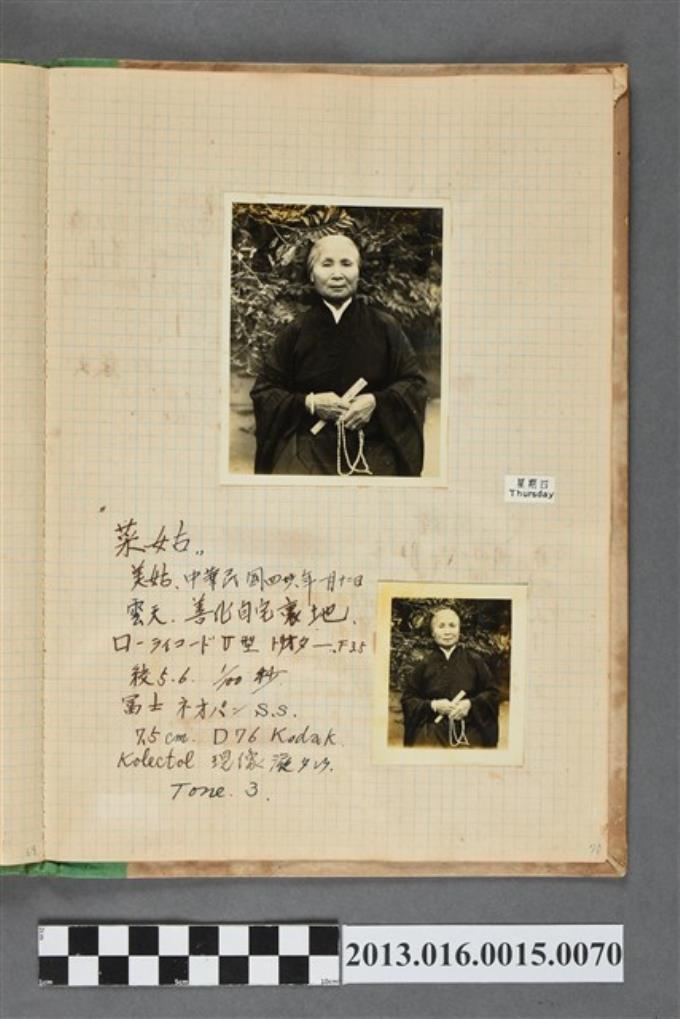 星期四
Thursday
"菜姑„
美姑、中華民國四廿年一月十二日
雲天．善化自宅裏地．
ローライコードⅡ型 トリオター．F3.5
絞5.6. 1/100 秒
富士 ネオパン S.S.
7.5cm. D76 Kodak.
Kolectol 現像液タンク.
Tone. 3.
69
70
2013.016.0015.0070
1cm
5cm
10cm